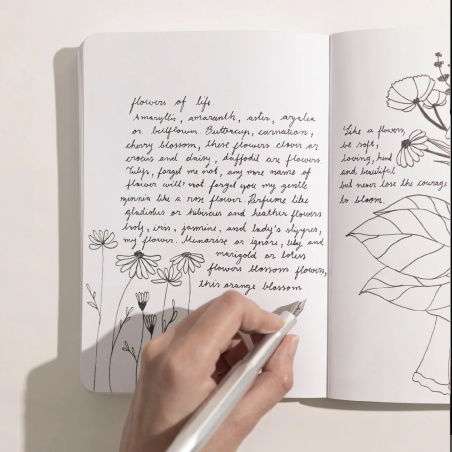 flowers of life.
Amaryllis, amaranth, aster, azalea
or bellflower Buttercup, carnation,
cherry blossom, these flowers clover or
crocus and daisy, daffodil are flowers
Tulip, forget me not, any more name of
flower will not forget you my gentle
zinnia like a rose flower. Perfume like
gladiolus or hibiscus and heather flowers
holy, iris, jasmine, and lady's slipper,
my flower. Memorise or ignore, lily and
marigold or lotus
flowers blossom flowers,
this orange blossom
Like a flowers,
be soft,
loving, kind
and beautiful
but never lose the courage
to bloom.